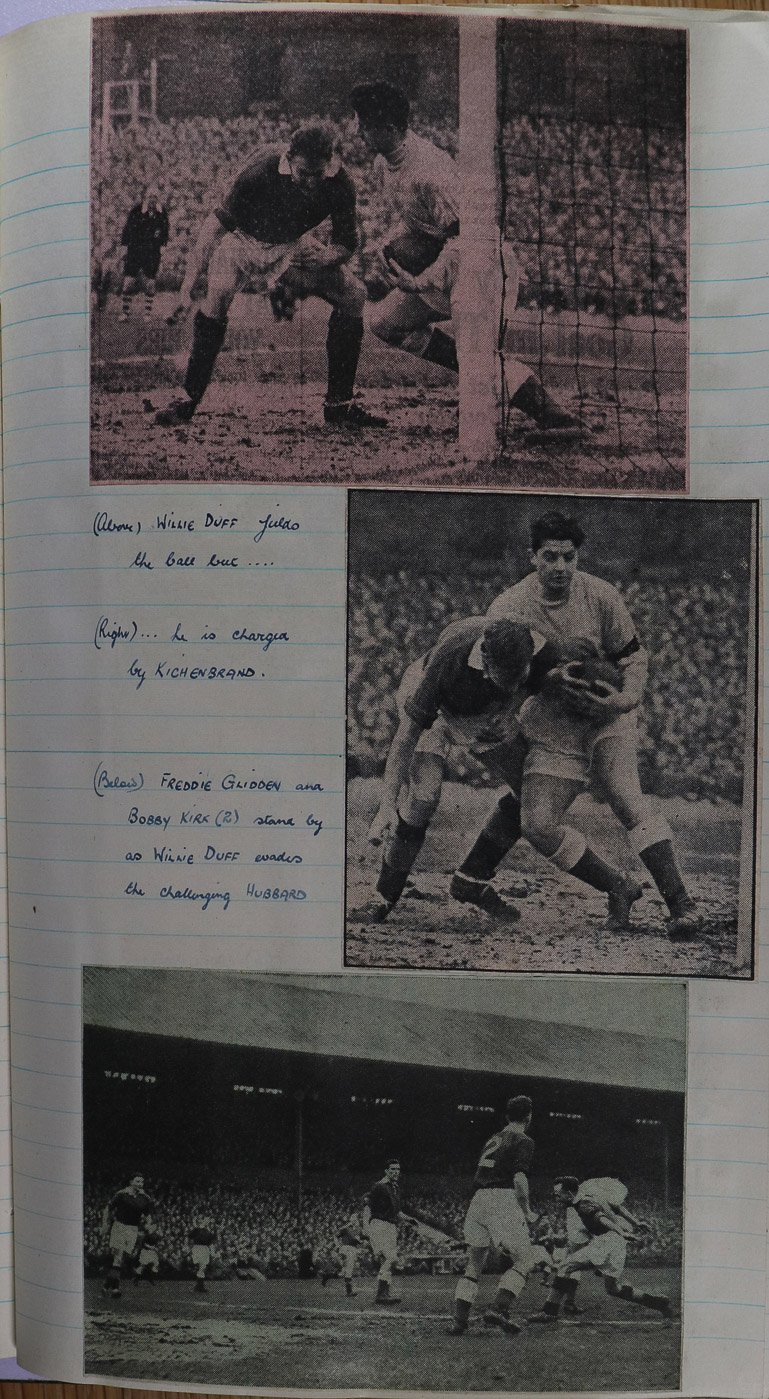 (Above) WILLIE DUFF fields
the ball but ....
(Right) ... he is charged
by KICHENBRAND.
(Below) FREDDIE GLIDDEN and
BOBBY KIRK (2) stand by
as WILLIE DUFF evades
the challenging HUBBARD
2